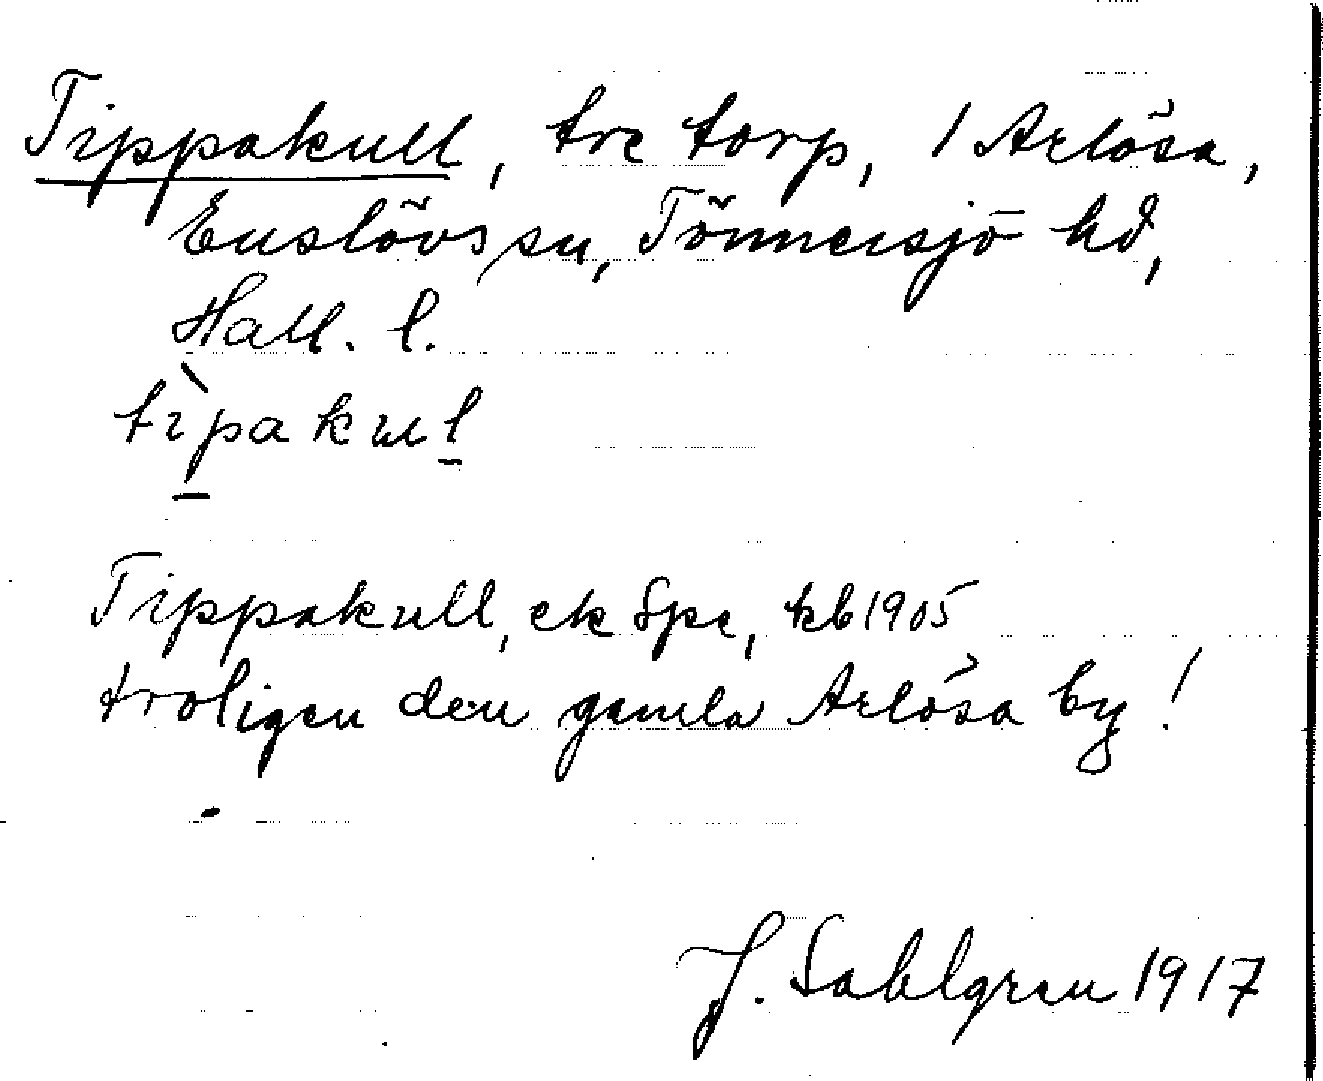 Tippakull, tre torp, 1 Årlösa,
Enslövs sn, Tönnersjö hd,
Hall. l.
tìpakul
Tippakull, ek Spe, kb 1905
troligen den gamla Årlösa by!
J. Sahlgren 1917